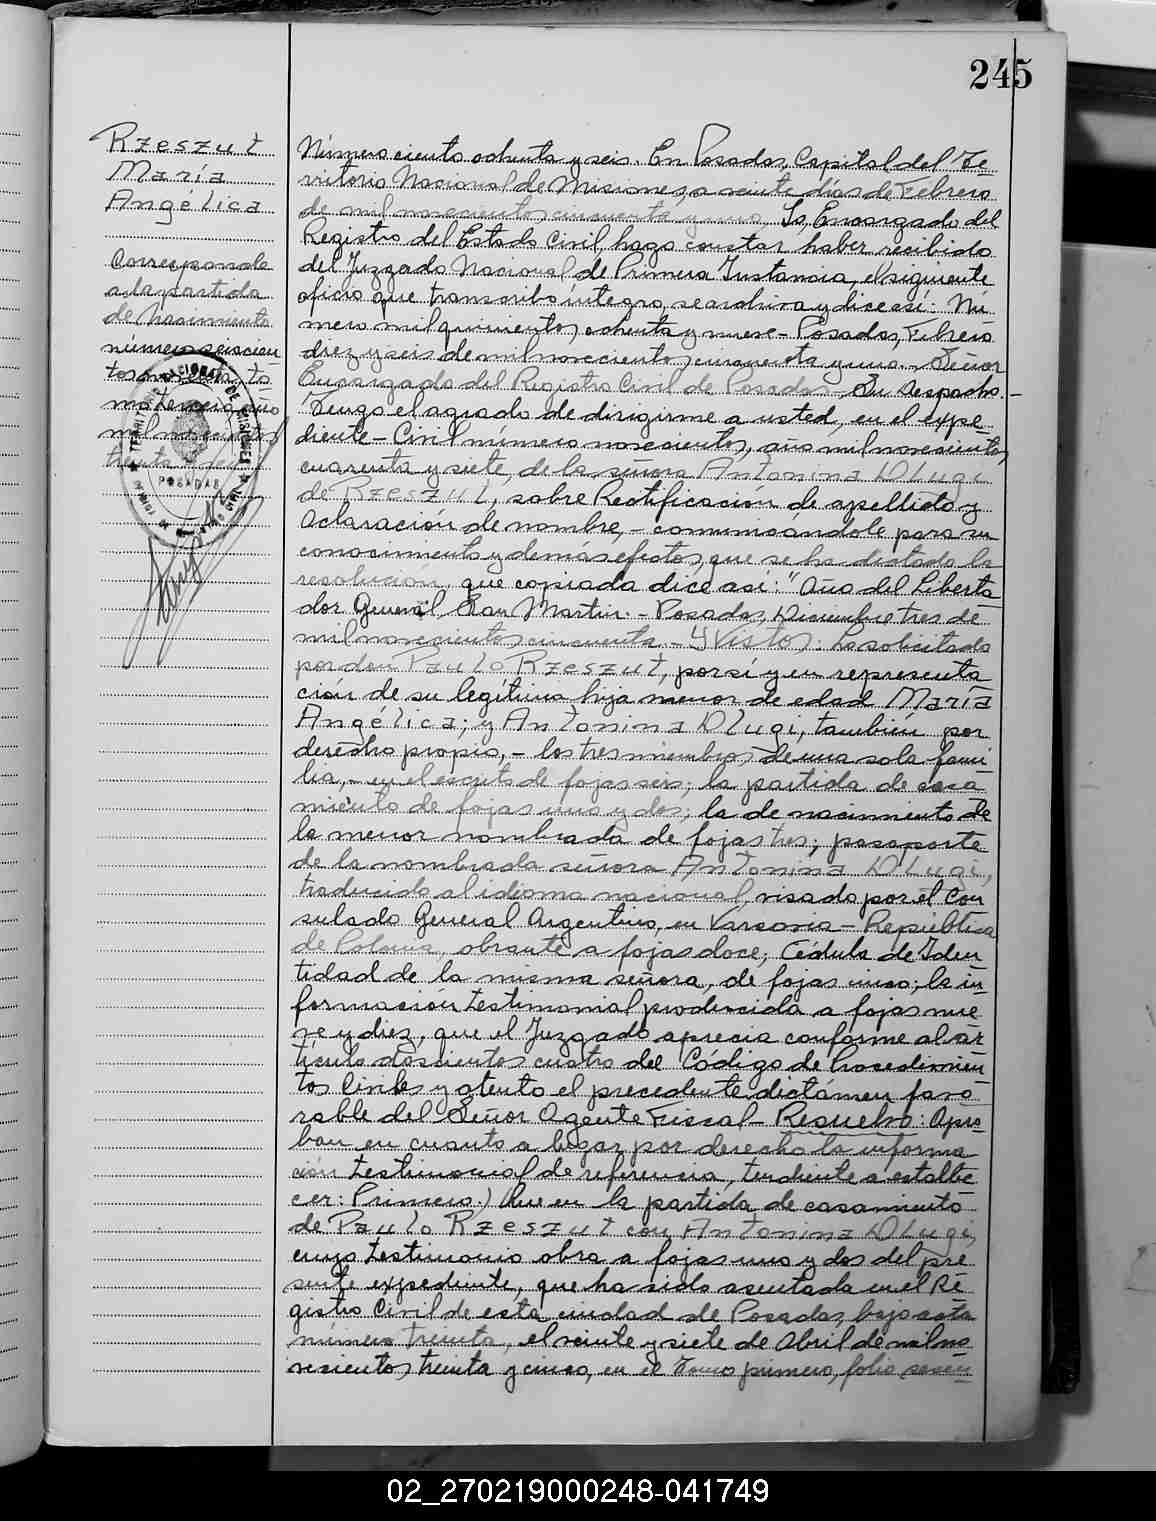 245
Rzeszut
María
Angélica
Corresponde
a la partida
de Nacimiento
número seiscien
tos
mo tercero año
mil novecientos
treinta
TERRITORIO NACIONAL DE MISIONES
POSADAS
Número ciento ochenta y seis. En Posadas, Capital del Te-
rritorio Nacional de Misiones, a veinte días de Febrero
de mil novecientos cincuenta y uno, Yo, Encargado del
Registro del Estado Civil, hago constar haber recibido
del Juzgado Nacional de Primera Instancia, el siguiente
oficio que transcribo íntegro, se archiva y dice así: "Nú
mero mil quinientos ochenta y nueve - Posadas, Febrero
diez y seis de mil novecientos cincuenta y uno. - Señor
Encargado del Registro Civil de Posadas - Su Despacho. -
Tengo el agrado de dirigirme a usted, en el expe-
diente - Civil número novecientos, año mil novecientos
cuarenta y siete, de la señora Antonina Dlugi
de Rzeszut, sobre Rectificación de apellido y
Aclaración de nombre, - comunicándole para su
conocimiento y demás efectos, que se ha dictado la
resolución, que copiada dice así: "Año del Liberta
dor General San Martín. - Posadas, Diciembre tres de
mil novecientos cincuenta. - Y Vistos: Lo solicitado
por don Paulo Rzeszut, por sí y en representa
ción de su legítima hija menor de edad María
Angélica; y Antonina Dlugi, también por
derecho propio, - los tres miembros de una sola fami-
lia, - en el escrito de fojas seis; la partida de casa
miento de fojas uno y dos; la de nacimiento de
la menor nombrada de fojas tres; pasaporte
de la nombrada señora Antonina Dlugi,
traducido al idioma nacional, visado por el Con
sulado General Argentino, en Varsovia - República
de Polonia, obrante a fojas doce; Cédula de Iden
tidad de la misma señora, de fojas cinco; la in-
formación testimonial producida a fojas nue
ve y diez, que el Juzgado aprecia conforme al ar
tículo doscientos cuatro del Código de Procedimien
tos Civiles y atento el precedente dictámen favo
rable del Señor Agente Fiscal - Resuelvo: Apro-
bar en cuanto a lugar por derecho la informa
ción testimonial de referencia, tendiente a estable
cer: Primero.) Que en la partida de casamiento
de Paulo Rzeszut con Antonina Dlugi,
cuyo testimonio obra a fojas uno y dos del pre
sente expediente, que ha sido asentada en el Re
gistro Civil de esta ciudad de Posadas, bajo acta
número treinta, el veinte y siete de Abril de mil no
vecientos treinta y cinco, en el Tomo primero, folio
02_270219000248-041749